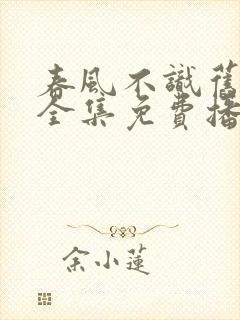 春風不識舊
全集免費播
余小蓮